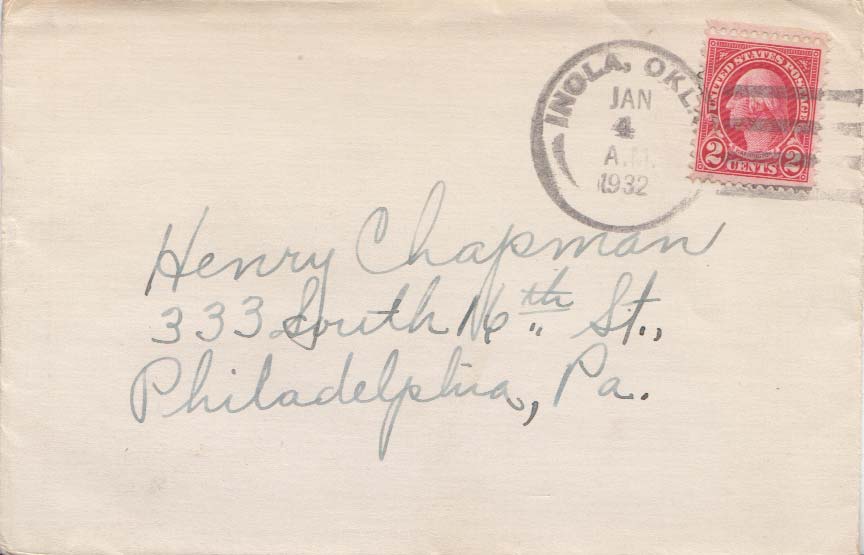 INOLA, OKLA.
JAN
4
A.M.
1932
UNITED STATES POSTAGE
2 CENTS 2
Henry Chapman
333 South 16th St.,
Philadelphia, Pa.